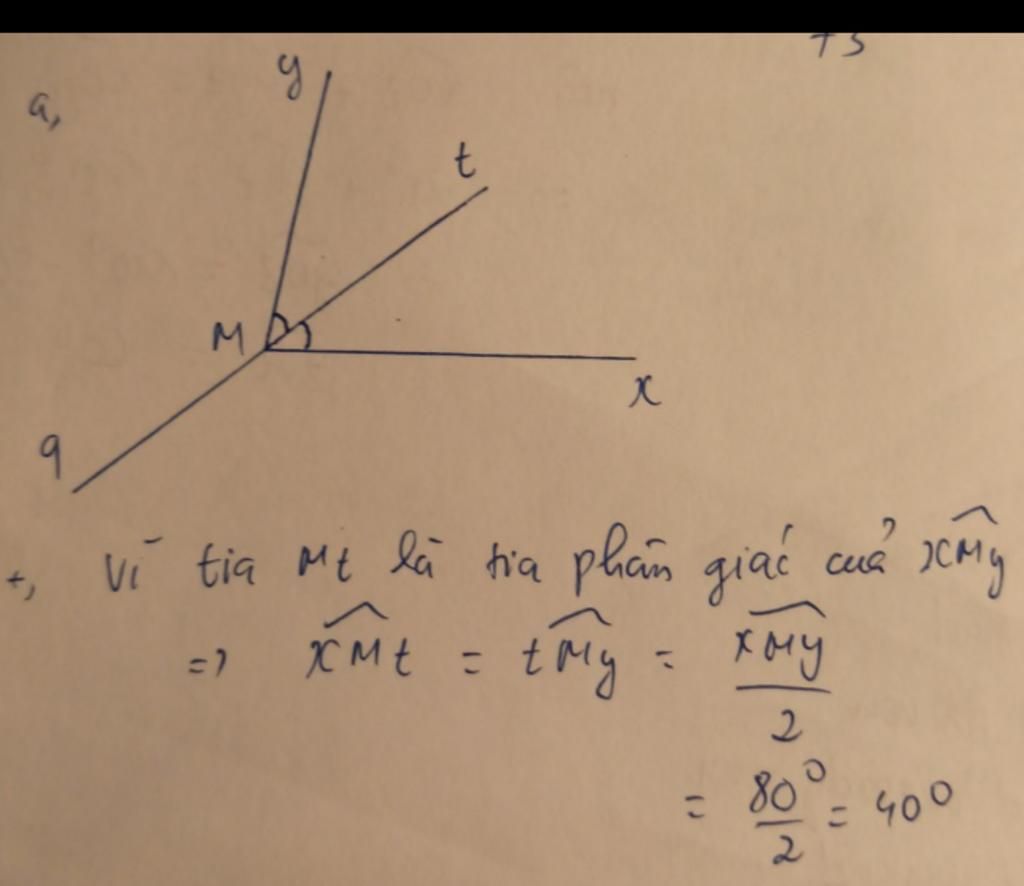 +3
a,
y
t
M
x
q
+, Vì tia Mt là tia phân giác của xMy
=> xMt = tMy = xMy / 2
= 80° / 2 = 40°